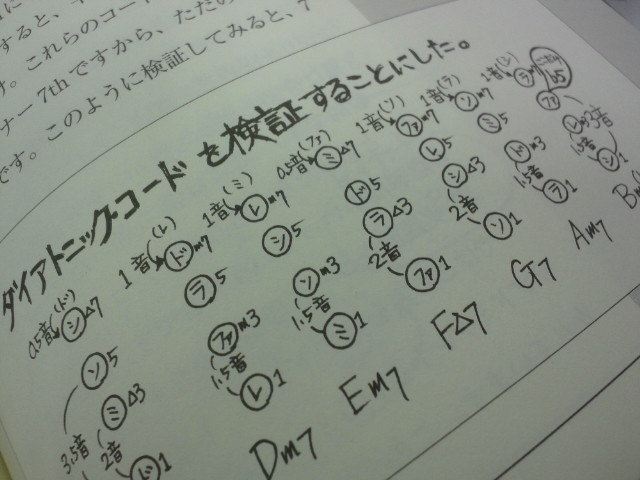 に
すると、
す。これらのコード
ナー7thですから、ただの
です。このように検証してみると、7
ダイアトニックコードを検証することにした。
0.5音(ド) 1音(レ) 1音(ミ) 0.5音(ファ) 1音(ソ) 1音(ラ) 1音(シ)
シ△7 ドm7 レm7 ミ△7 ファm7 ソm7 ラm7
ソ5 ラ5 シ5 ド5 レ5 ミ5 ファ b5
ミ△3 ファm3 ソm3 ラ△3 シ△3 ドm3 レm3
3.5音 2音 1.5音 1.5音 2音 2音 1.5音 1.5音 3音
ド1 レ1 ミ1 ファ1 ソ1 ラ1 シ1
Dm7 Em7 F△7 G7 Am7